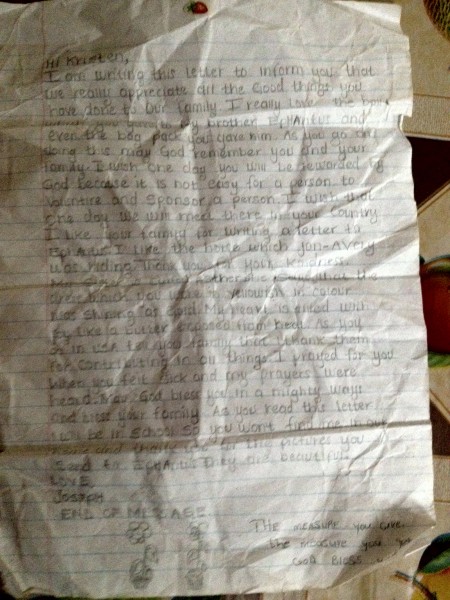 Hi Kristen,
I am writing this letter to inform you that
we really appreciate all the Good things you
have done to Our family. I really love the
my brother Ephantus and
even the bag pack you gave him. As you go on
doing this may God remember you and your
family. I wish one day you will be rewarded by
God because it is not easy for a person to
and Sponsor a person. I wish that
one day we will meet there in your Country
I like your family for writing a letter to
Ephantus. I like the horse which Jon-Avery
was riding. Thank you for your kindness.
that the
dress which you wore is yellowish in colour
was shining as gold. My heart is filled with
joy like a butter exposed from heat. As you
in USA tell you family that I thank them
for contributing in all things. I prayed for you
when you felt sick and my prayers were
heard. May God bless you in a mighty ways
God bless your family. As you read this letter
I will be in School so you won't find me in our
home and thank you for the pictures you
Send to Ephantus. They are beautiful.
LOVE
Joseph
END OF MESSAGE
THE measure you Give,
the measure you get
GOD BLESS